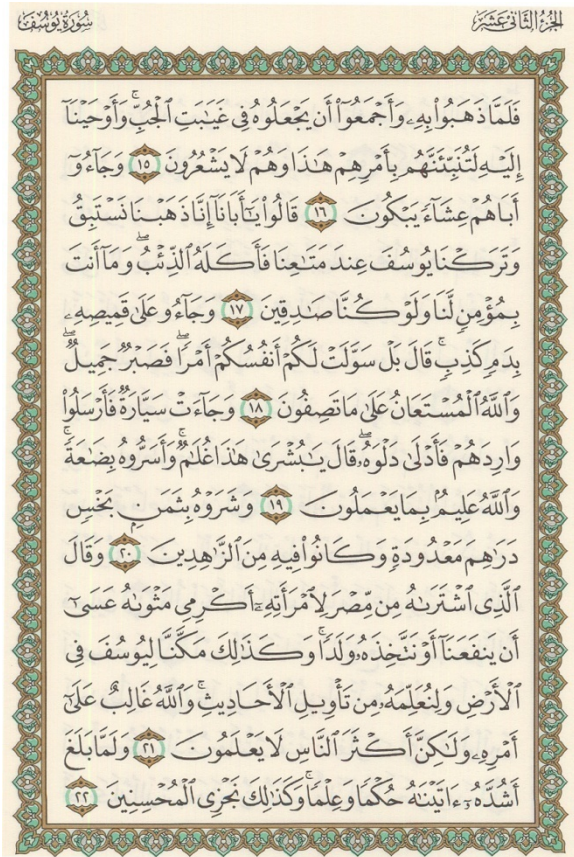 الجزء الثاني عشر
سورة يوسف
فَلَمَّا ذَهَبُوا۟ بِهِۦ وَأَجْمَعُوٓا۟ أَن يَجْعَلُوهُ فِى غَيَٰبَتِ ٱلْجُبِّ ۚ وَأَوْحَيْنَآ
إِلَيْهِ لَتُنَبِّئَنَّهُم بِأَمْرِهِمْ هَٰذَا وَهُمْ لَا يَشْعُرُونَ ١٥ وَجَآءُوٓ
أَبَاهُمْ عِشَآءً يَبْكُونَ ١٦ قَالُوا۟ يَٰٓأَبَانَآ إِنَّا ذَهَبْنَا نَسْتَبِقُ
وَتَرَكْنَا يُوسُفَ عِندَ مَتَٰعِنَا فَأَكَلَهُ ٱلذِّئْبُ ۖ وَمَآ أَنتَ
بِمُؤْمِنٍ لَّنَا وَلَوْ كُنَّا صَٰدِقِينَ ١٧ وَجَآءُو عَلَىٰ قَمِيصِهِۦ
بِدَمٍ كَذِبٍ ۚ قَالَ بَلْ سَوَّلَتْ لَكُمْ أَنفُسُكُمْ أَمْرًا ۖ فَصَبْرٌ جَمِيلٌ ۖ
وَٱللَّهُ ٱلْمُسْتَعَانُ عَلَىٰ مَا تَصِفُونَ ١٨ وَجَآءَتْ سَيَّارَةٌ فَأَرْسَلُوا۟
وَارِدَهُمْ فَأَدْلَىٰ دَلْوَهُۥ ۖ قَالَ يَٰبُشْرَىٰ هَٰذَا غُلَٰمٌ ۚ وَأَسَرُّوهُ بِضَٰعَةً ۚ
وَٱللَّهُ عَلِيمٌۢ بِمَا يَعْمَلُونَ ١٩ وَشَرَوْهُ بِثَمَنٍۭ بَخْسٍ
دَرَٰهِمَ مَعْدُودَةٍ وَكَانُوا۟ فِيهِ مِنَ ٱلزَّٰهِدِينَ ٢٠ وَقَالَ
ٱلَّذِى ٱشْتَرَىٰهُ مِن مِّصْرَ لِٱمْرَأَتِهِۦٓ أَكْرِمِى مَثْوَىٰهُ عَسَىٰٓ
أَن يَنفَعَنَآ أَوْ نَتَّخِذَهُۥ وَلَدًا ۚ وَكَذَٰلِكَ مَكَّنَّا لِيُوسُفَ فِى
ٱلْأَرْضِ وَلِنُعَلِّمَهُۥ مِن تَأْوِيلِ ٱلْأَحَادِيثِ ۚ وَٱللَّهُ غَالِبٌ عَلَىٰٓ
أَمْرِهِۦ وَلَٰكِنَّ أَكْثَرَ ٱلنَّاسِ لَا يَعْلَمُونَ ٢١ وَلَمَّا بَلَغَ
أَشُدَّهُۥٓ ءَاتَيْنَٰهُ حُكْمًا وَعِلْمًا ۚ وَكَذَٰلِكَ نَجْزِى ٱلْمُحْسِنِينَ ٢٢